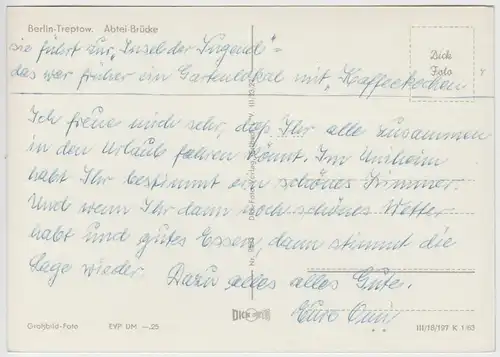 Berlin-Treptow. Abtei-Brücke
sie führt zur "Insel der Jugend" =
das war früher ein Gartenlokal mit "Kaffeekochen
Bild:
Foto
Ich freue mich sehr, daß Ihr alle zusammen
in den Urlaub fahren könnt. Im Uniheim
habt Ihr bestimmt ein schönes Zimmer.
Und wenn Ihr dann noch schönes Wetter
habt und gutes Essen, dann stimmt die
Lage wieder. Dazu alles alles Gute.
Eure Omi!
Großbild-Foto EVP DM —.25
III/18/197 K 1/63